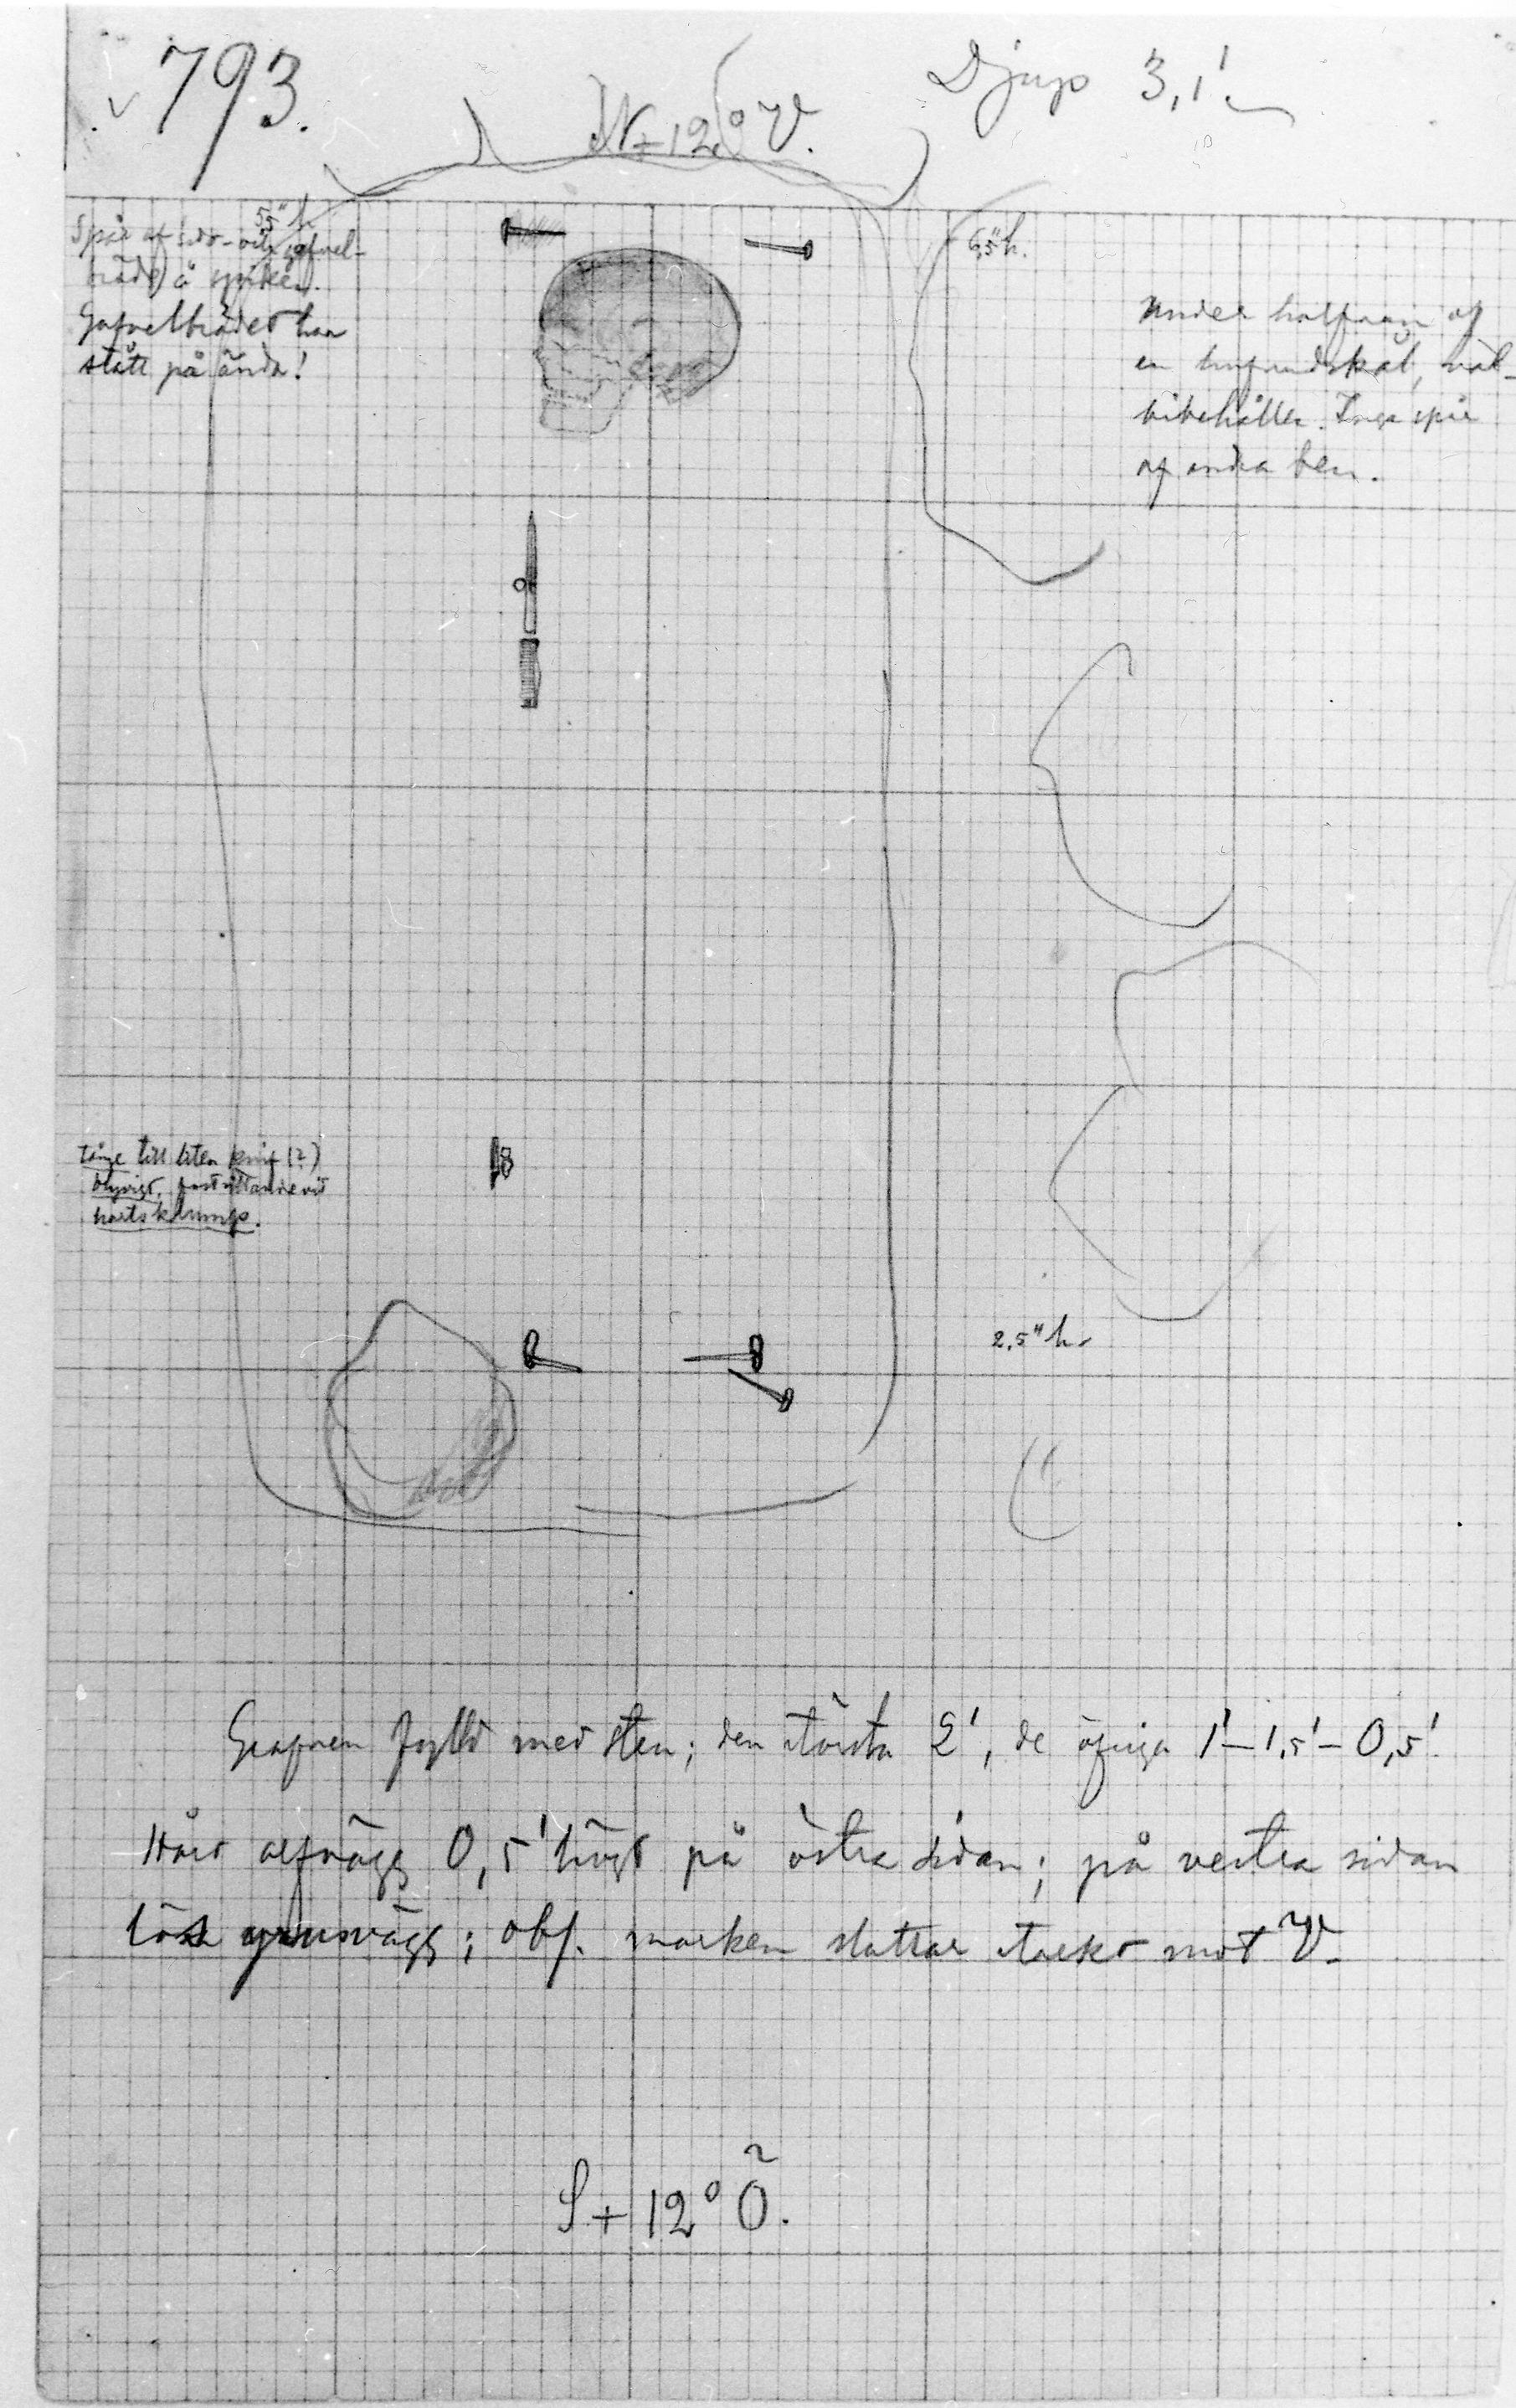 793.
N+12°V.
Djup 3,1'
5,5" h.
Spår af sido- och gafvel-
bräde å spiken.
Gafvelbrädet har
stått på ända!
5,5" h.
Under halfvan af
en hufvudskål, väl-
bibehållen. Inga spår
af andra ben.
Tånge till liten knif (?)
otydligt, fastsittande vid
hartsklump.
2,5" h.
Grafven fylld med sten; den största 2', de öfriga 1'–1,5'–0,5'.
Hård alfvägg 0,5' högt på östra sidan; på vestra sidan
lös grusvägg; obs. marken sluttar starkt mot V.
S+12°Ö.